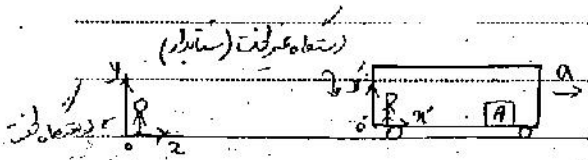 دستگاه غیر لخت (شتابدار)
دستگاه لخت
y
o
x
y'
o'
x'
A
a